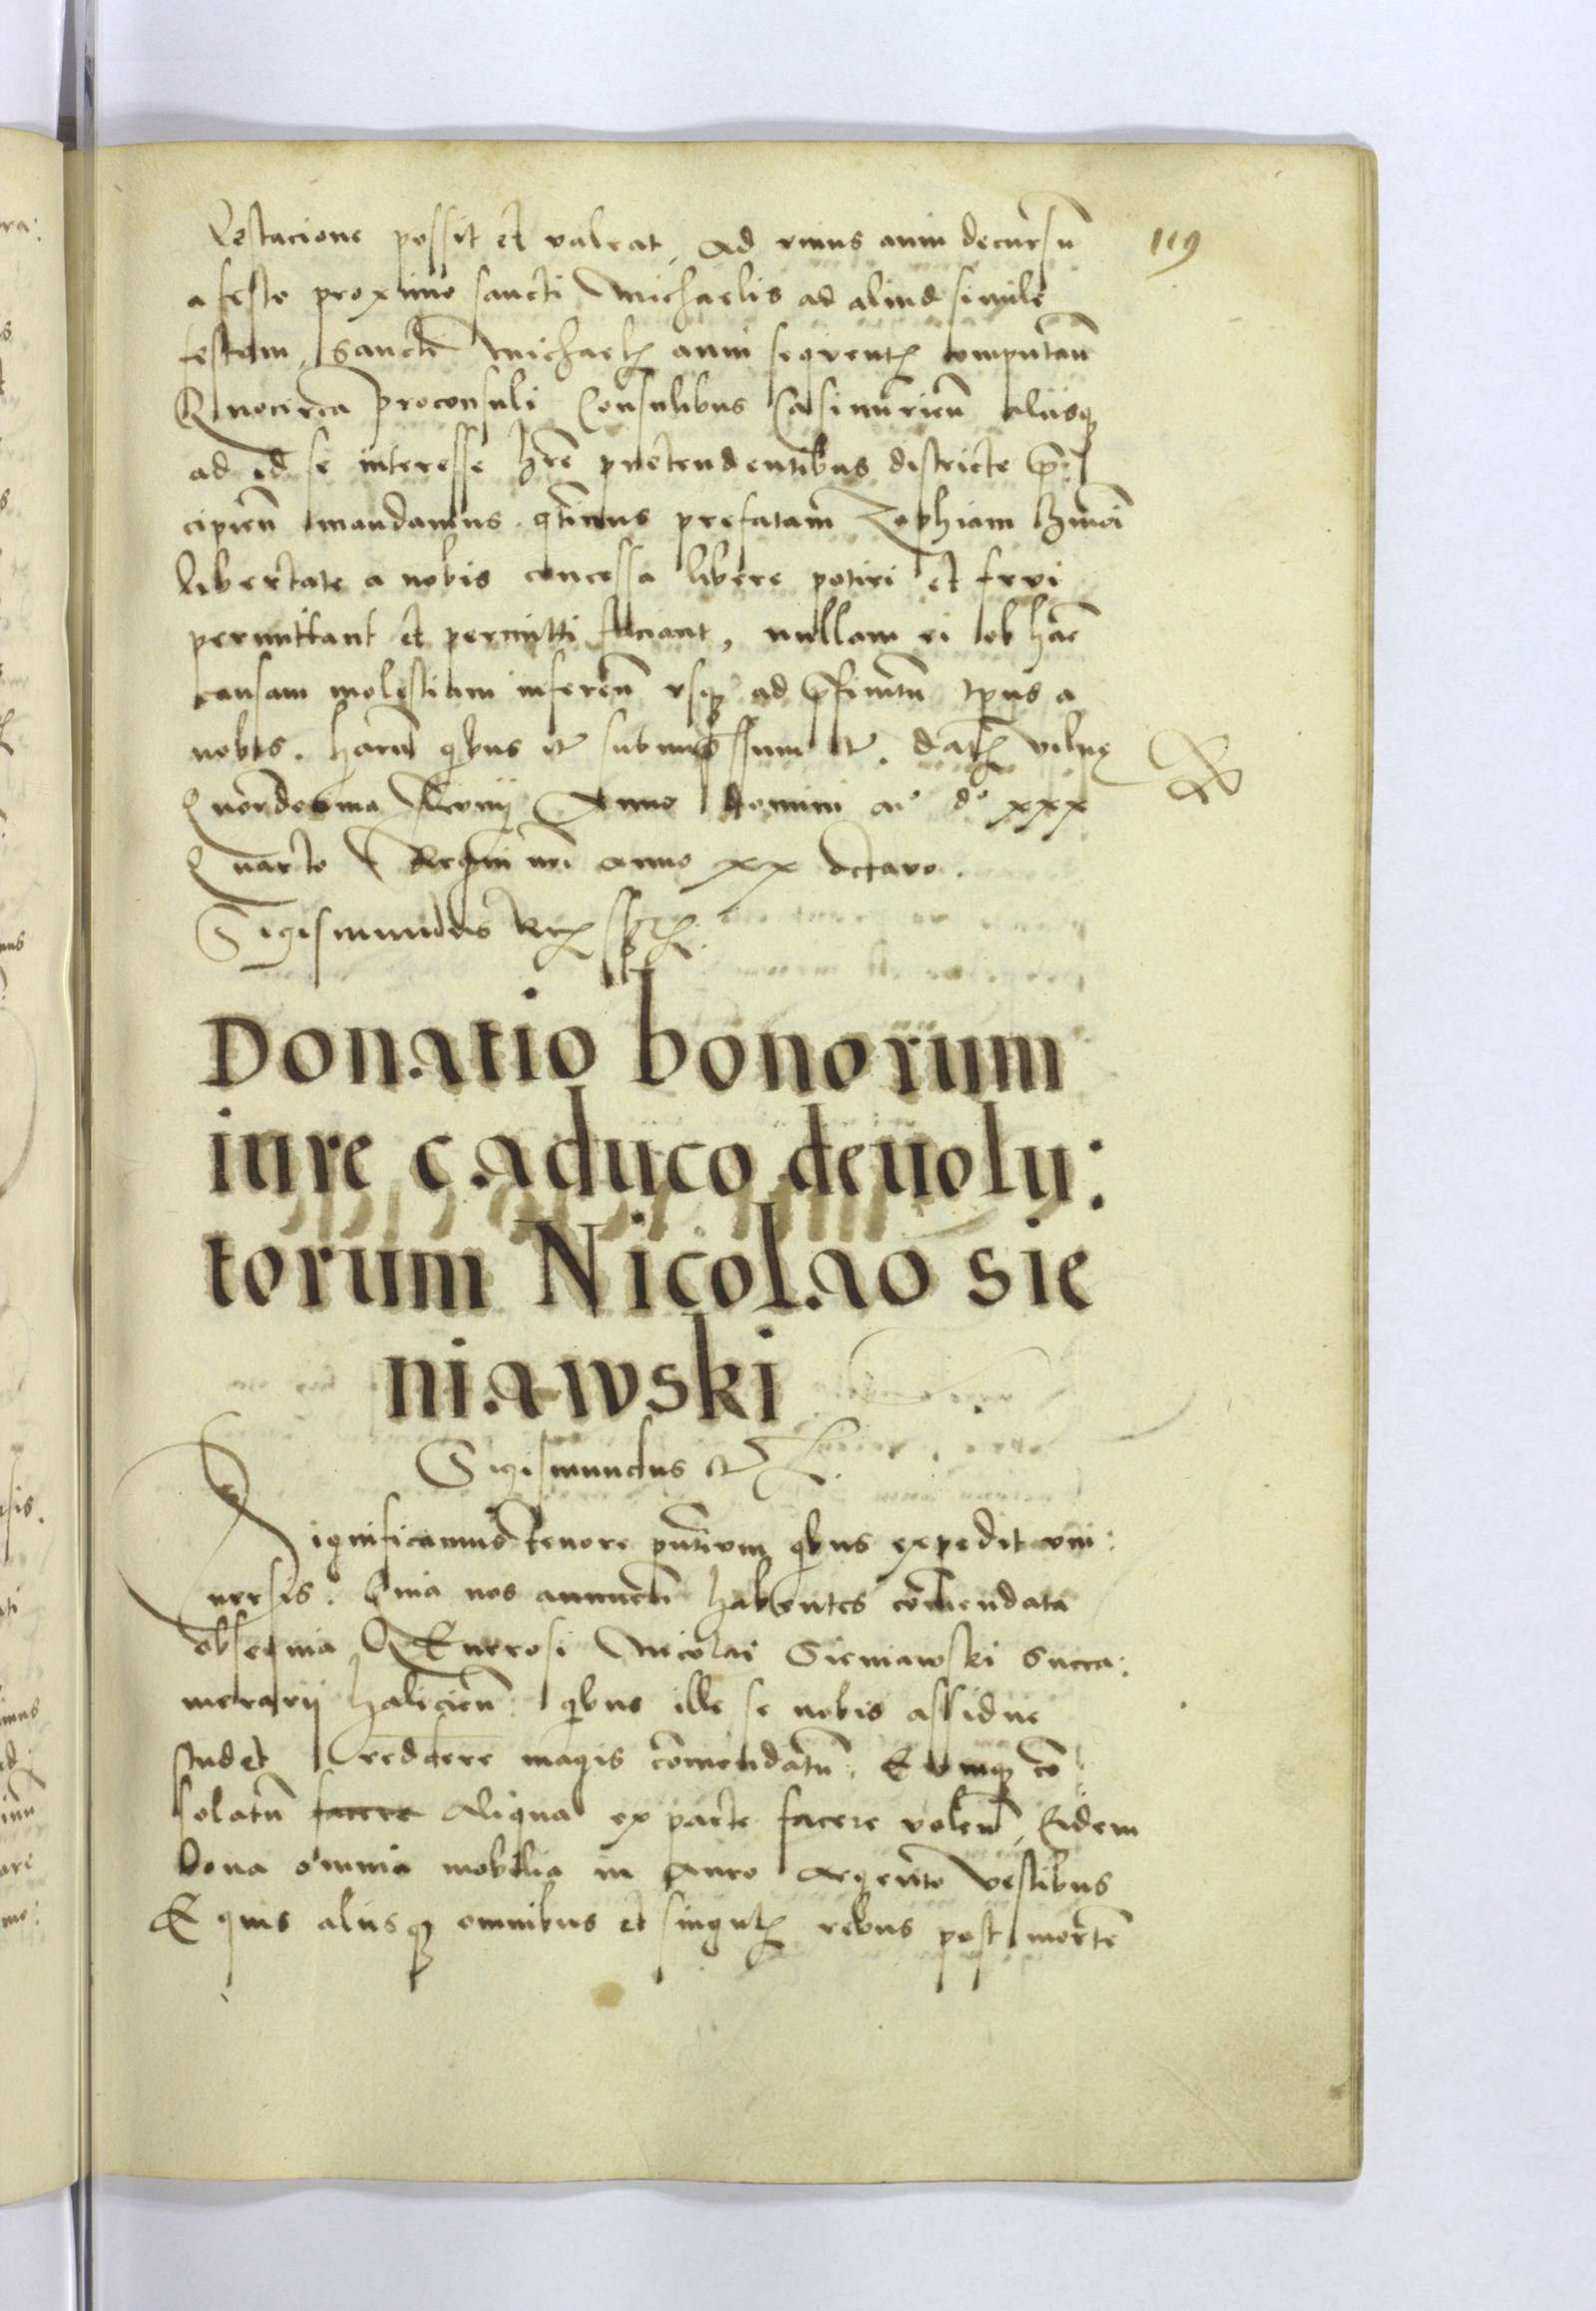 119
Restacione possit et valeat, ad vnius anni decursū
a festo proximo sancti Michaelis ad aliud simile
festum sancti Michaelꝭ anni sequentꝭ computan̄
Quocirca proconsuli Consulibus Casimirien̄ aliisqꝫ
ad id se interesse hr̄e pretendentibus districte p̄
cipien̄ mandamus qt̄inus prefatam Zophiam hmōi
libertate a nobis concessa libere potiri et frui
permittant et permitti faciant, nullam ei ob hāc
causam molestiam inferen̄ vsqꝫ ad p̄finitū tp̄us a
nobis. harū qbus etc subimpressum etc. datꝭ vilnę
Anno domini mº dº xxx
Quarto Regni nrī anno xx octavo.
Sigismundus Rex sst
Donatio bonorum
iure caduco deuolu:
torum Nicolao sie
niawski
Sigismundus etc
Significamus tenore pn̄tium qbus expedit vni:
uersis. Quia nos habentes cōmendata
obsequia GEnerosi Nicolai Sieniawski Succa:
merarij halicien̄ qbus ille se nobis assidue
studet reddere magis cōmendatū, Eumqꝫ cō
solatū facere aliqua ex parte facere volen̄, Eidem
bona omnia mobilia in auro argento vestibus
Equis aliisqꝫ omnibus et singulꝭ rebus post mortē